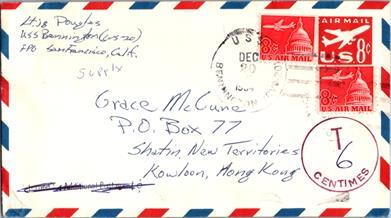 Ltjg Douglas
USS Bennington (CVS-20)
FPO San Francisco, Calif.
Supply
U.S.
DEC
20
AIR MAIL
US 8¢
8¢
U.S. AIR MAIL
8¢
U.S. AIR MAIL
Grace McCune
P.O. Box 77
Shatin, New Territories
Kowloon, Hong Kong
T
6
CENTIMES